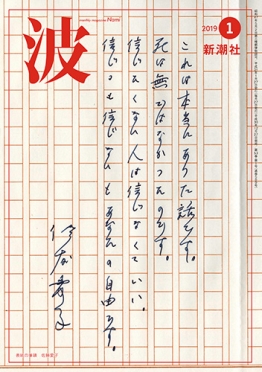 波
monthly magazine Nami
2019
1
新潮社
これは本当にあった話です。
死は無ではなかったのです。
信じたくない人は信じなくていい。
信じるも信じないもあなたの自由です。
佐藤愛子
表紙の筆蹟 佐藤愛子